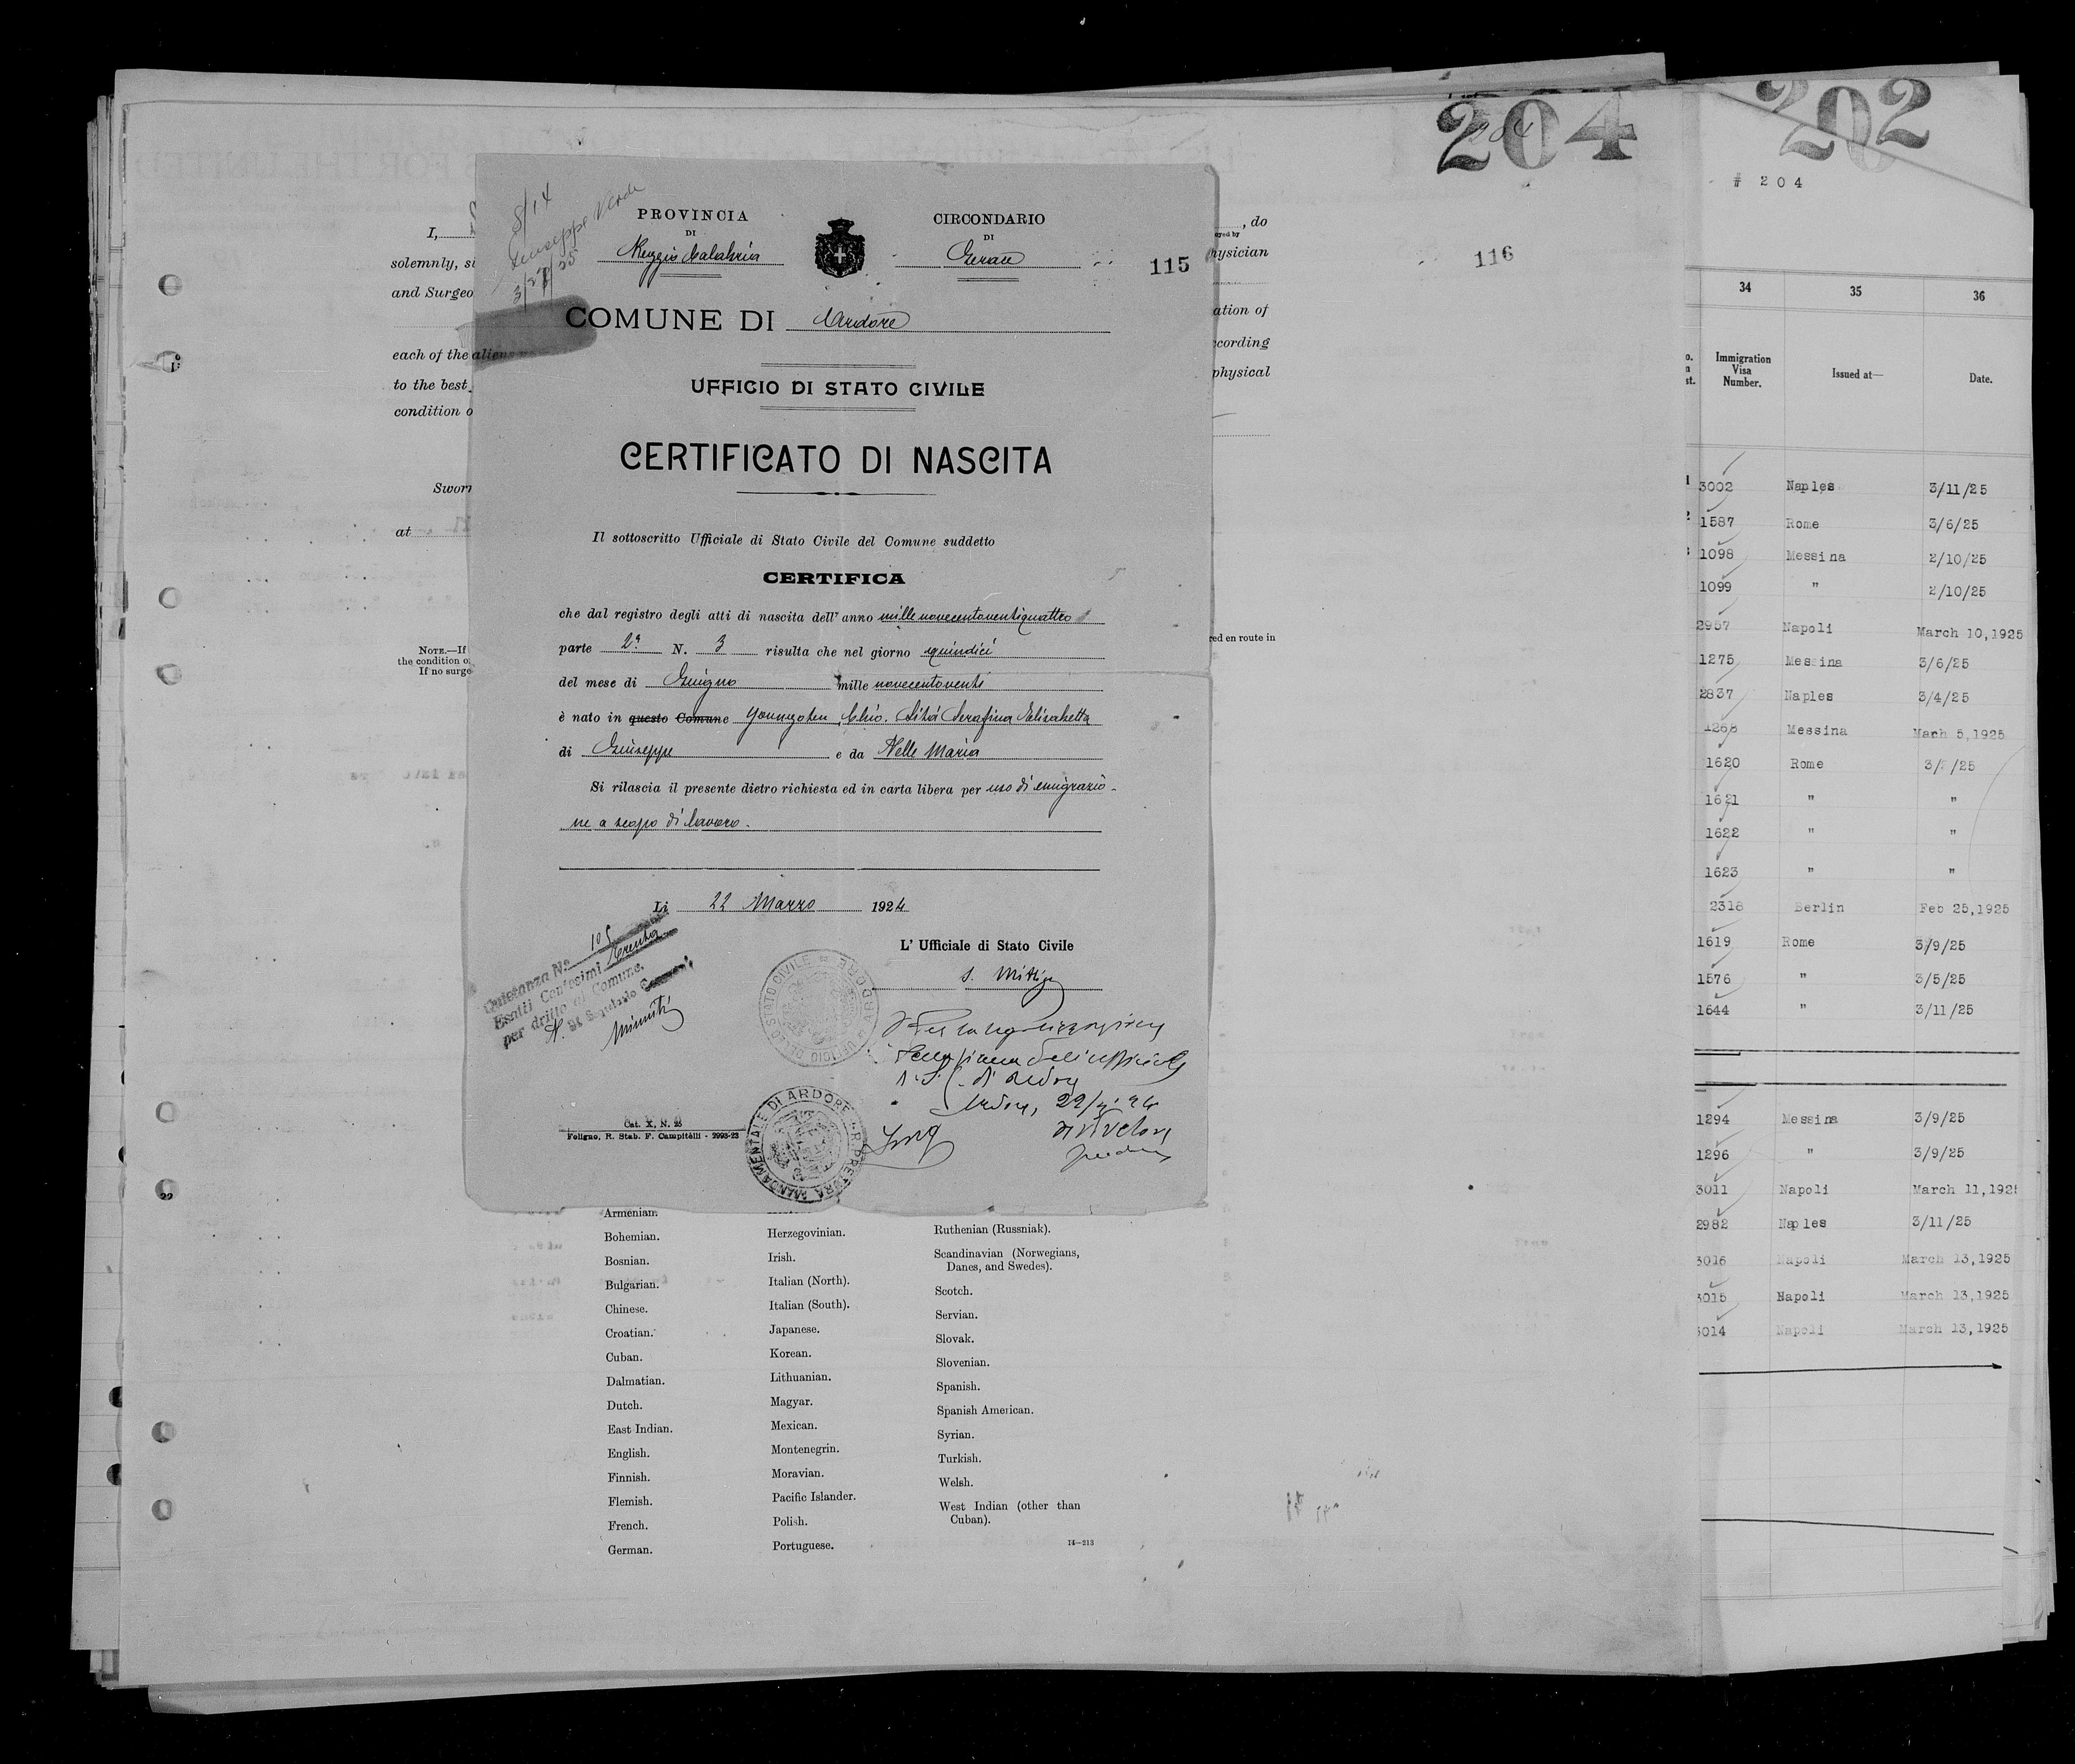 204
202
# 204
8/14
Giuseppe Verde
3/27/25
PROVINCIA
DI
Reggio Calabria
CIRCONDARIO
DI
Gerace
115
116
COMUNE DI Ardore
UFFICIO DI STATO CIVILE
CERTIFICATO DI NASCITA
Il sottoscritto Ufficiale di Stato Civile del Comune suddetto
CERTIFICA
che dal registro degli atti di nascita dell' anno millenovecentoventiquattro
parte 2ª N. 3 risulta che nel giorno quindici
del mese di Giugno mille novecentoventi
è nato in questo Comune Youngsten Ohio. Litá Serafina Elisabetta
di Giuseppe e da Nelle Maria
Si rilascia il presente dietro richiesta ed in carta libera per uso di emigrazio-
ne a scopo di lavoro.
Li 22 Marzo 1924
L' Ufficiale di Stato Civile
Quietanza N° 105
Esatti Centesimi trenta
per dritto al Comune.
Il Segretario
Minniti
UFFICIO DELLO STATO CIVILE ARDORE
R. PRETURA MANDAMENTALE DI ARDORE
Cat. X, N. 25
Foligno, R. Stab. F. Campitelli - 2993-23
I,
, do
solemnly, si
hysician
and Surgeo
ation of
each of the aliens
ccording
to the best
physical
condition o
Sworn
at
NOTE.—If
red en route in
the condition o
If no surge
Armenian.
Bohemian.
Bosnian.
Bulgarian.
Chinese.
Croatian.
Cuban.
Dalmatian.
Dutch.
East Indian.
English.
Finnish.
Flemish.
French.
German.
Herzegovinian.
Irish.
Italian (North).
Italian (South).
Japanese.
Korean.
Lithuanian.
Magyar.
Mexican.
Montenegrin.
Moravian.
Pacific Islander.
Polish.
Portuguese.
Ruthenian (Russniak).
Scandinavian (Norwegians,
Danes, and Swedes).
Scotch.
Servian.
Slovak.
Slovenian.
Spanish.
Spanish American.
Syrian.
Turkish.
Welsh.
West Indian (other than
Cuban).
14—213
34 35 36
Immigration
Visa
Number.
Issued at—
Date.
3002 Naples 3/11/25
1587 Rome 3/6/25
1098 Messina 2/10/25
1099 " 2/10/25
2957 Napoli March 10,1925
1275 Messina 3/6/25
2837 Naples 3/4/25
1268 Messina Mach 5,1925
1620 Rome
1621 " "
1622 " "
1623 " "
2318 Berlin Feb 25,1925
1619 Rome 3/9/25
1576 " 3/5/25
1644 " 3/11/25
1294 Messina 3/9/25
1296 " 3/9/25
3011 Napoli March 11,192
2982 Naples 3/11/25
3016 Napoli March 13,1925
3015 Napoli March 13,1925
3014 Napoli March 13,1925